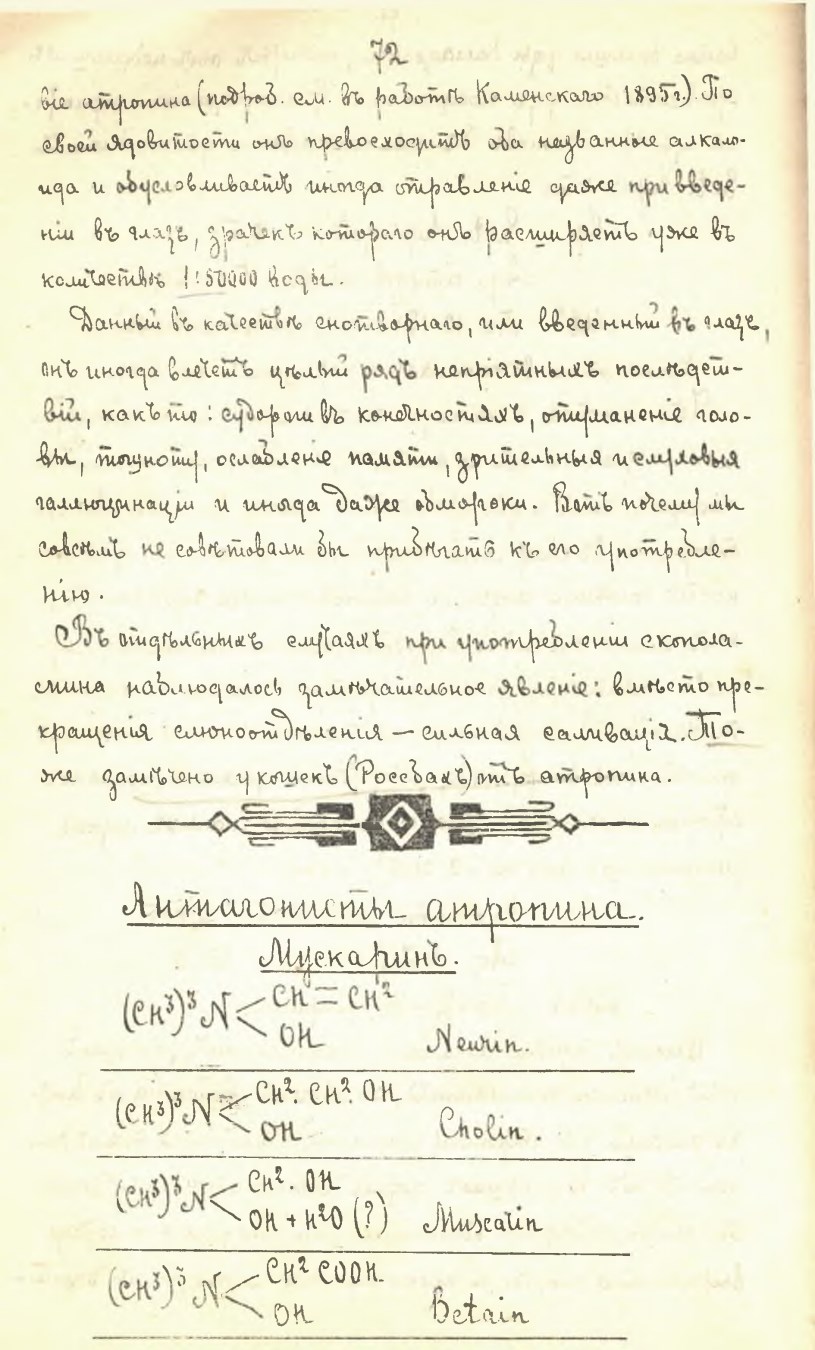 72
віе атропина (подроб. см. въ работѣ Каменскаго 1895 г.). По
своей ядовитости онъ превосходитъ оба названные алкало-
ида и обусловливаетъ иногда отравленіе даже при введе-
ніи въ глазъ, зрачекъ котораго онъ расширяетъ уже въ
количествѣ 1:50000 воды.
Данный въ качествѣ снотворнаго, или введенный въ глазъ,
онъ иногда влечетъ цѣлый рядъ непріятныхъ послѣдст-
вій, какъ то: судороги въ конечностяхъ, отуманеніе голо-
вы, тошноту, ослабленіе памяти, зрительныя и слуховыя
галлюцинаціи и иногда даже обмороки. Вотъ почему мы
совсѣмъ не совѣтовали бы прибѣгать къ его употребле-
нію.
Въ отдѣльныхъ случаяхъ при употребленіи скопола-
смина наблюдалось замѣчательное явленіе: вмѣсто пре-
кращенія слюноотдѣленія — сильная саливація. То-
же замѣчено у кошекъ (Россбахъ) отъ атропина.
Антагонисты атропина.
Мускаринъ.
(CH³)³N < CH = CH²
OH Neurin.
(CH³)³N < CH². CH². OH
OH Cholin.
(CH³)³N < CH². OH
OH + H²O (?) Muscarin
(CH³)³N < CH² COOH.
OH Betain